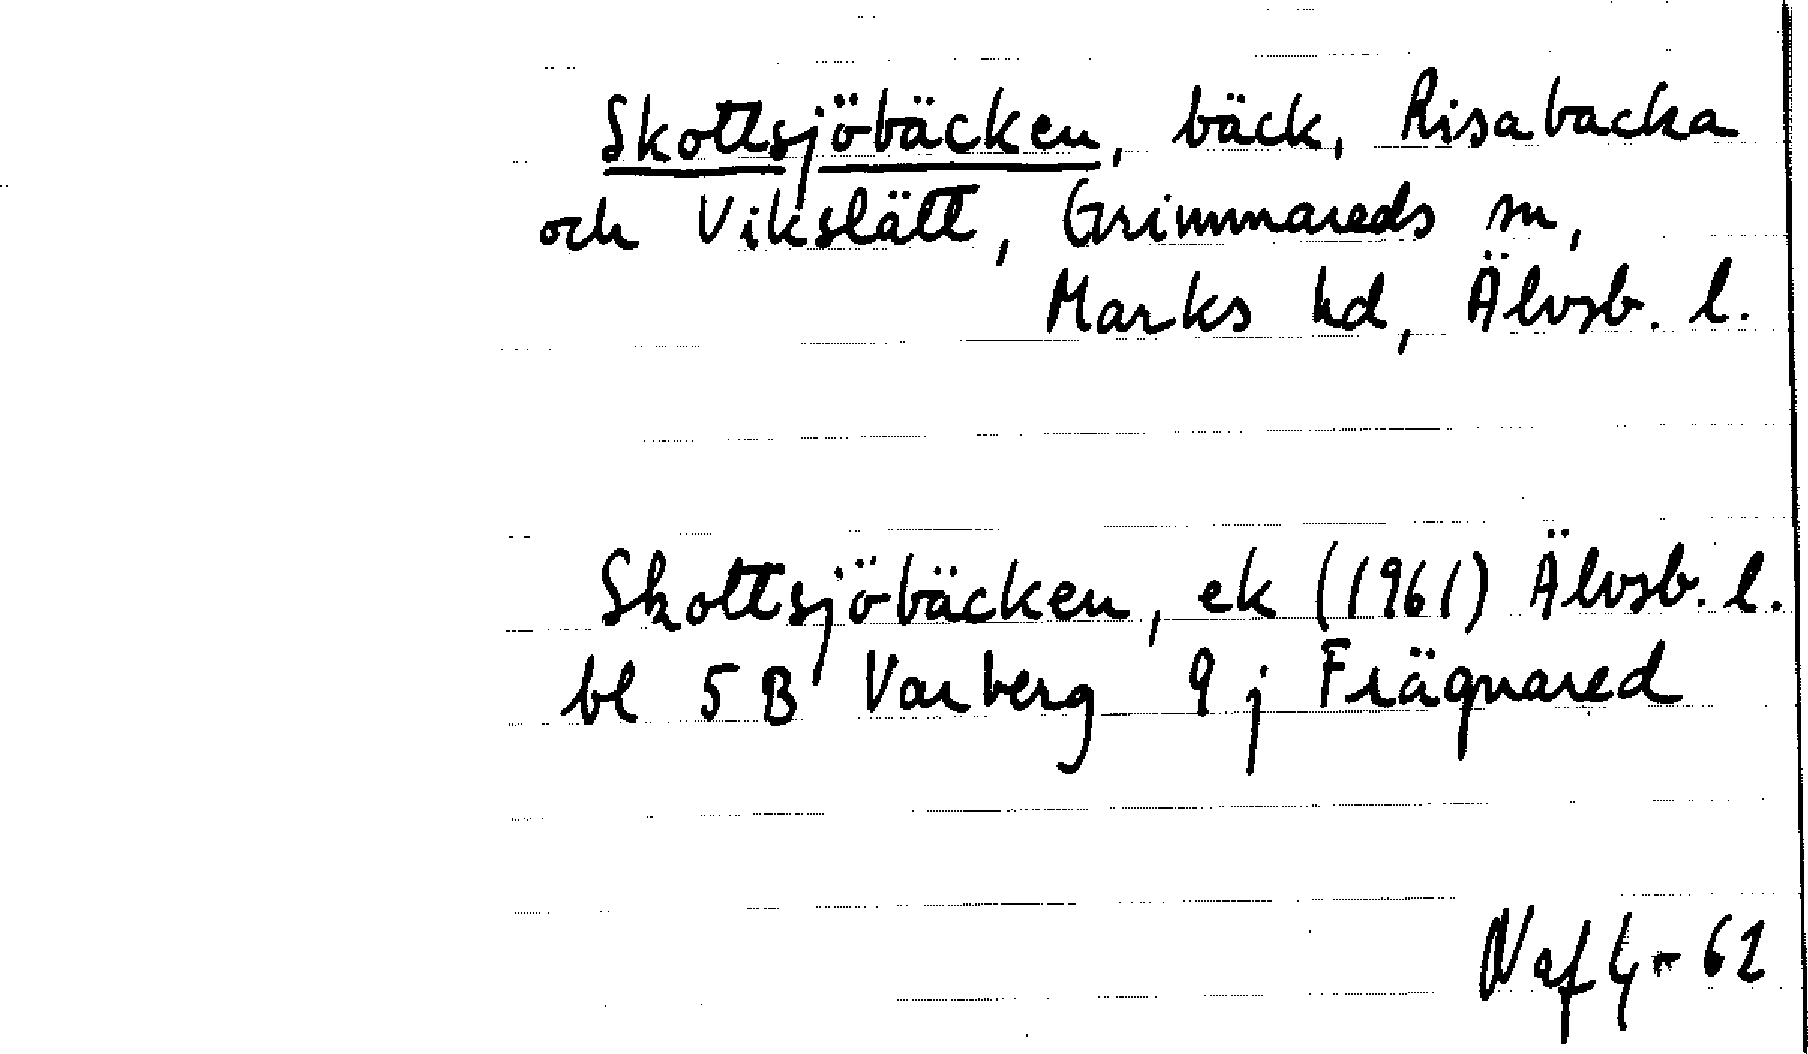 Skottsjöbäcken, bäck, Risabacka
och Vikslätt, Grimmareds sn,
Marks hd, Älvsb. l.
Skottsjöbäcken, ek (1961) Älvsb. l.
bl 5 B Varberg 9 j Frägnared
62